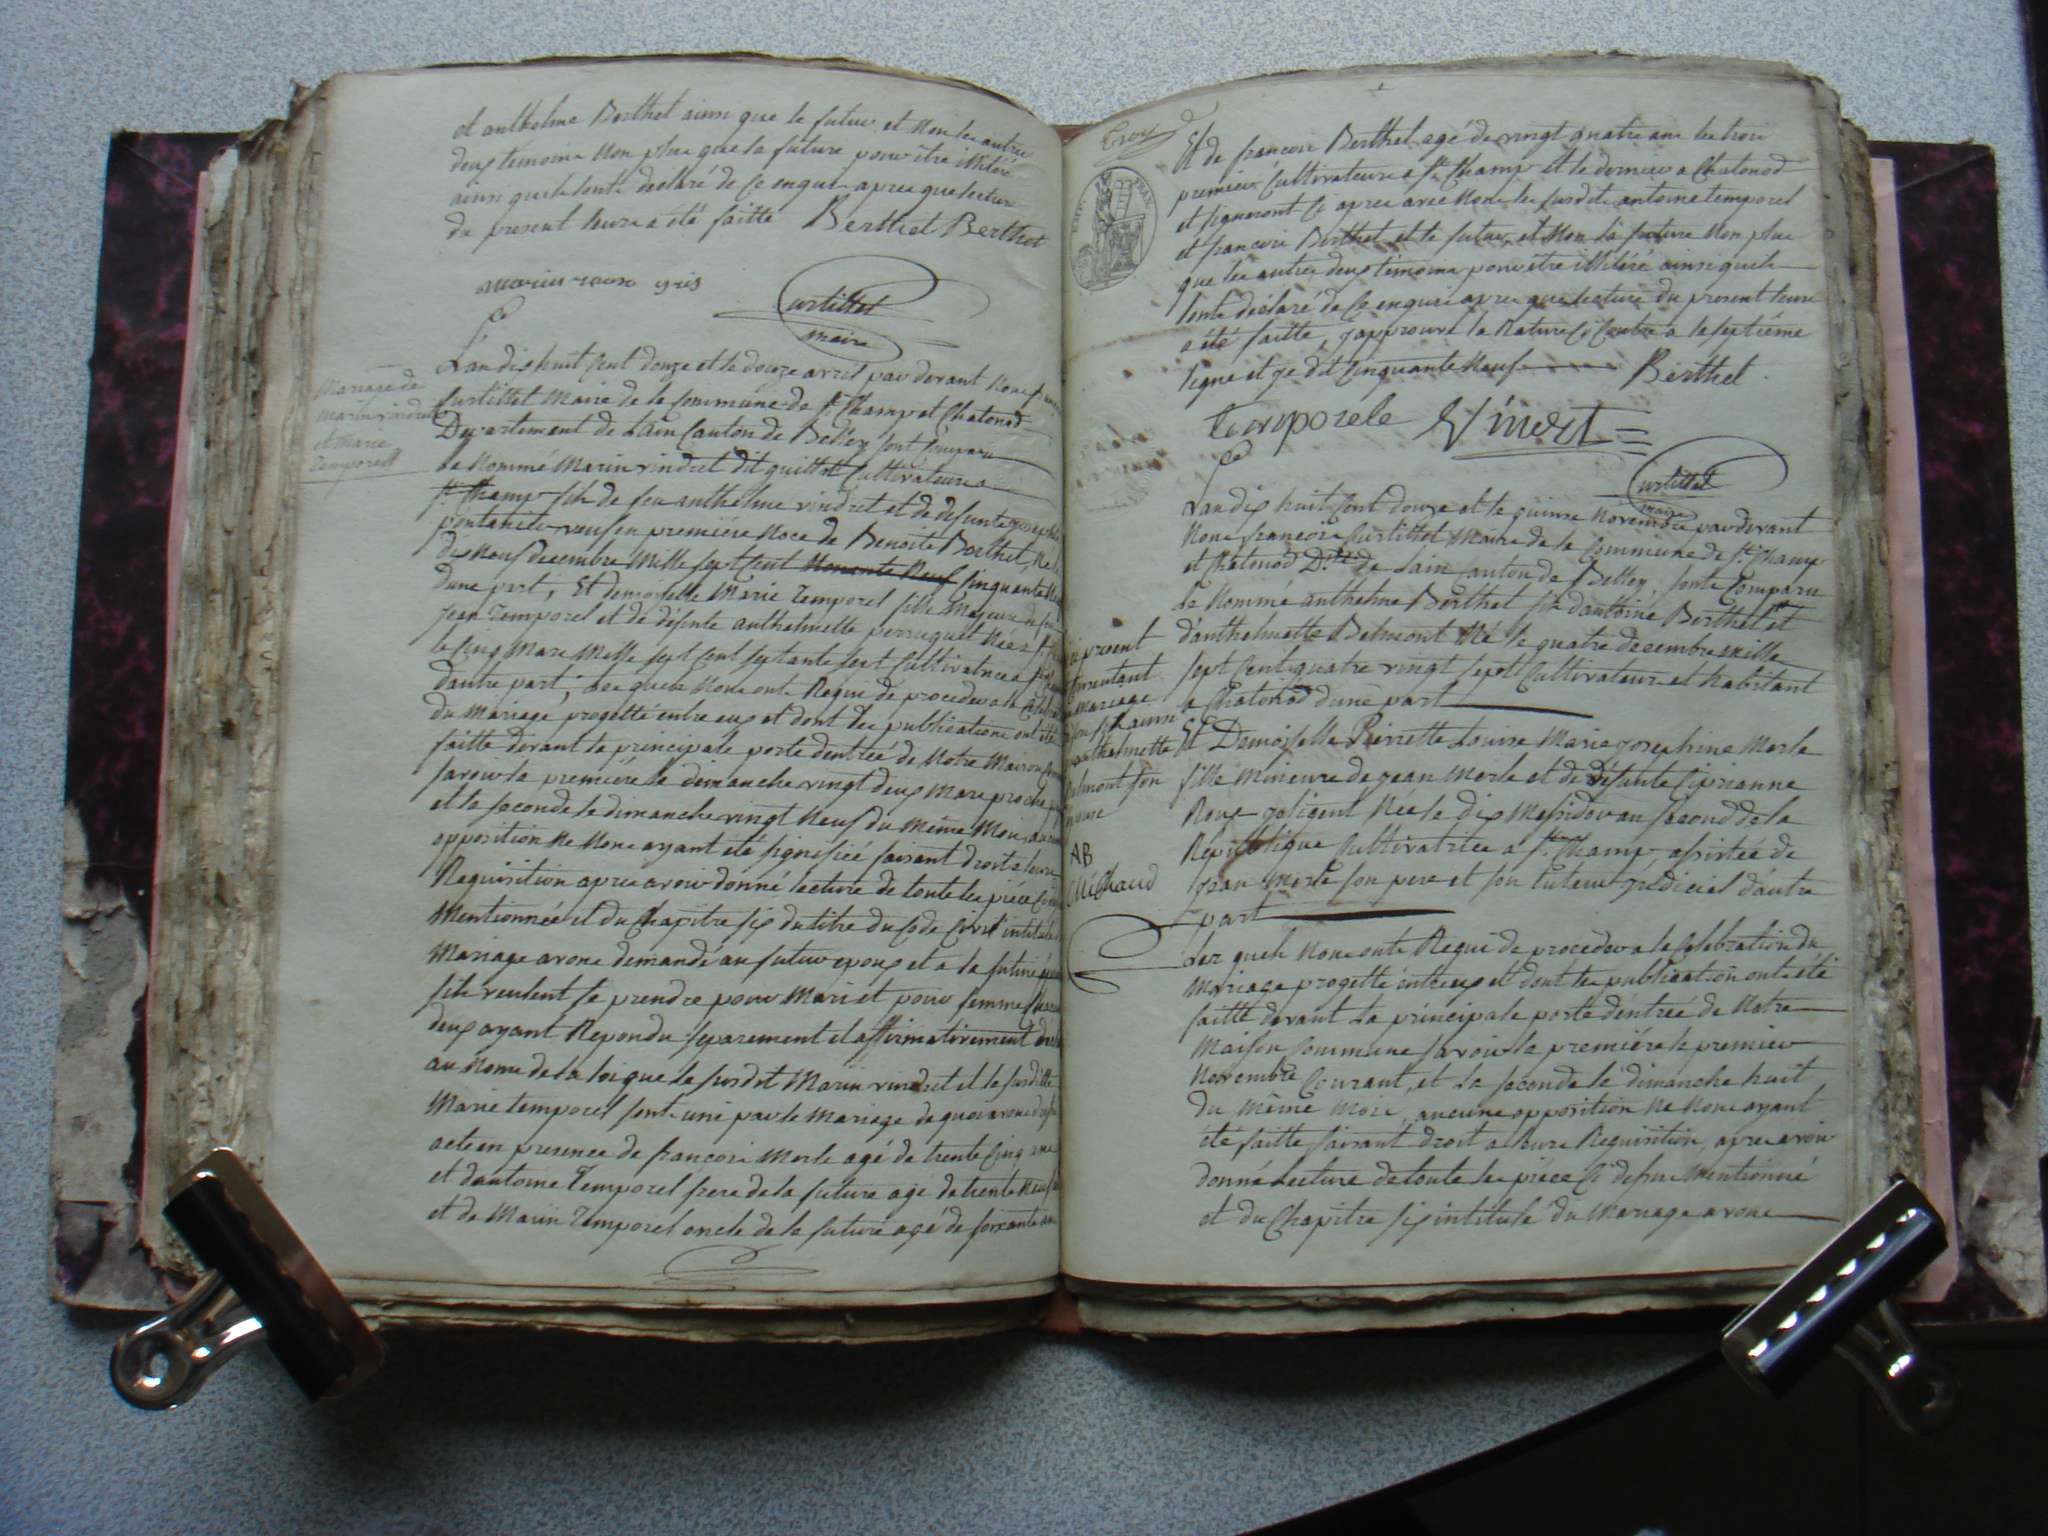 et anthelme Berthet ainsi que le futur et non les autres
deux temoins non plus que la future pour être illitéré
ainsi quils sont declaré de ce enquis apres que lecture
du present leurs a été faitte Berthet Berthet
marin roux gris
Curtillet
maire
Mariage de
Marin vindret
et Marie
Temporel
L'an dix huit cent douze et le douze avril par devant nous
Curtillet Maire de la commune de St Champ et Chatonod
Departement de Lain Canton de Belley sont comparu
Le nommé Marin vindret dit guillot Cultivateur a
St Champ fils de feu anthelme vindret et de defunte
veuf en premiére noce de Benoite Berthet, né le
dix neuf Decembre mille sept cent nonante neuf cinquante
dune part, Et demoiselle Marie Temporel fille majeure de feu
Jean Temporel et de défunte anthelmette perruquet née a St
le cinq Mars mille sept cent septante sept Cultivatrice a St
dautre part; Les quels nous ont Requi de proceder a la
du Mariage progetté entre eux et dont les publications ont été
faitte devant la principale porte dentréé de notre Maison
savoir la premiére le dimanche vingt deux Mars proche
et la seconde le dimanche vingt neuf du même Mois
opposition ne nous ayant été signifiée faisant droit a leurs
Requisition apres avoir donné lecture de toute les piéce
Mentionnée et du Chapitre six du titre du Code Civil intitulé
Mariage avons demandé au futur epoux et a la future
sils veulent se prendre pour Mari et pour femme
deux ayant Repondu separement et affirmativement
au nome de la loi que le susdit Marin vindret et la susditte
Marie temporel sont uni par le Mariage de quoi avons
acte en presence de francois Merle agé de trente cinq ans
et dantoine Temporel frere de la future agé de trente neuf
et de Marin Temporel oncle de la future agé de soixante ans
Troy
EMP. FRAN.
Et de francois Berthet agé de vingt quatre ans les trois
premiers Cultivateurs a St Champ et le dernier a Chatonod
et signeront ci apres avec nous les susdits antoine temporel
et francois Berthet et le futur, et non la future non plus
que les autres deux témoins pour être illitéré ainsi quils
sont déclaré de ce enquis apres que lecture du present leurs
a été faitte, japprouve la Rature ci contre a la septiéme
ligne et je dit Cinquante neuf Berthet
Temporele Vindret
Curtillet
maire
L'an dix huit cent douze et le quinse novembre par devant
nous françois Curtillet Maire de la Commune de St Champ
et Chatonod Dtt de Lain Canton de Belley, sont Comparu
Le nommé anthelme Berthet fils dantoine Berthet et
d'anthelmette Belmont né le quatre decembre mille
sept cent quatre vingt sept Cultivateur et habitant
a Chatonod dune part
present
mariage
anthelmette
Belmont son
AB
Michaud
Et Demoiselle Pierrette Louise Marie josephine Merle
fille mineure de jean Merle et de défunte Ciprianne
Roux née le dix Messidor an second de la
Republique Cultivatrice a St Champ, assistée de
jean Merle son pere et son tuteur judiciel dautre
part
Lez quels nous ont Requi de procéder a la Celebration du
Mariage progetté entre eux et dont les publication ont été
faitte devant La principale porte dentrée de notre
Maison commune savoir la premiére le premier
novembre Courant, et La seconde le dimanche huit
du même mois, aucune opposition ne nous ayant
été faitte faisant droit a leurs Requisition, apres avoir
donné Lecture de toute les piéce ci dessus Mentionné
et du Chapitre six intitulé du Mariage avons